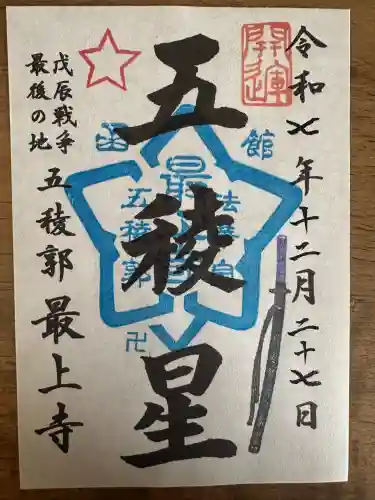 開運
令和七年十二月二十七日
五稜星
函館
五稜郭
戊辰戦争
最後の地
五稜郭 最上寺
卍